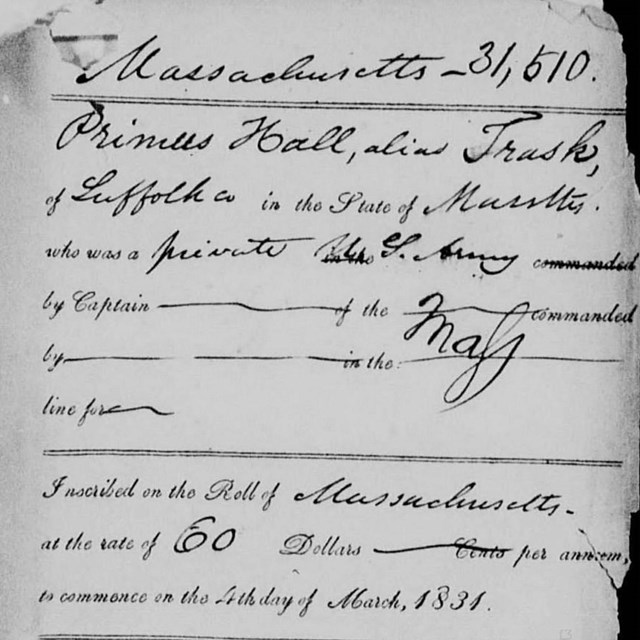 Massachusetts - 31,510.
Primus Hall, alias Trask,
of Suffolk co in the State of Massttes.
who was a private in the U.S. Army commanded
by Captain of the commanded
by in the Mass
line for
Inscribed on the Roll of Massachusetts -
at the rate of 60 Dollars Cents per annum,
to commence on the 4th day of March, 1831.